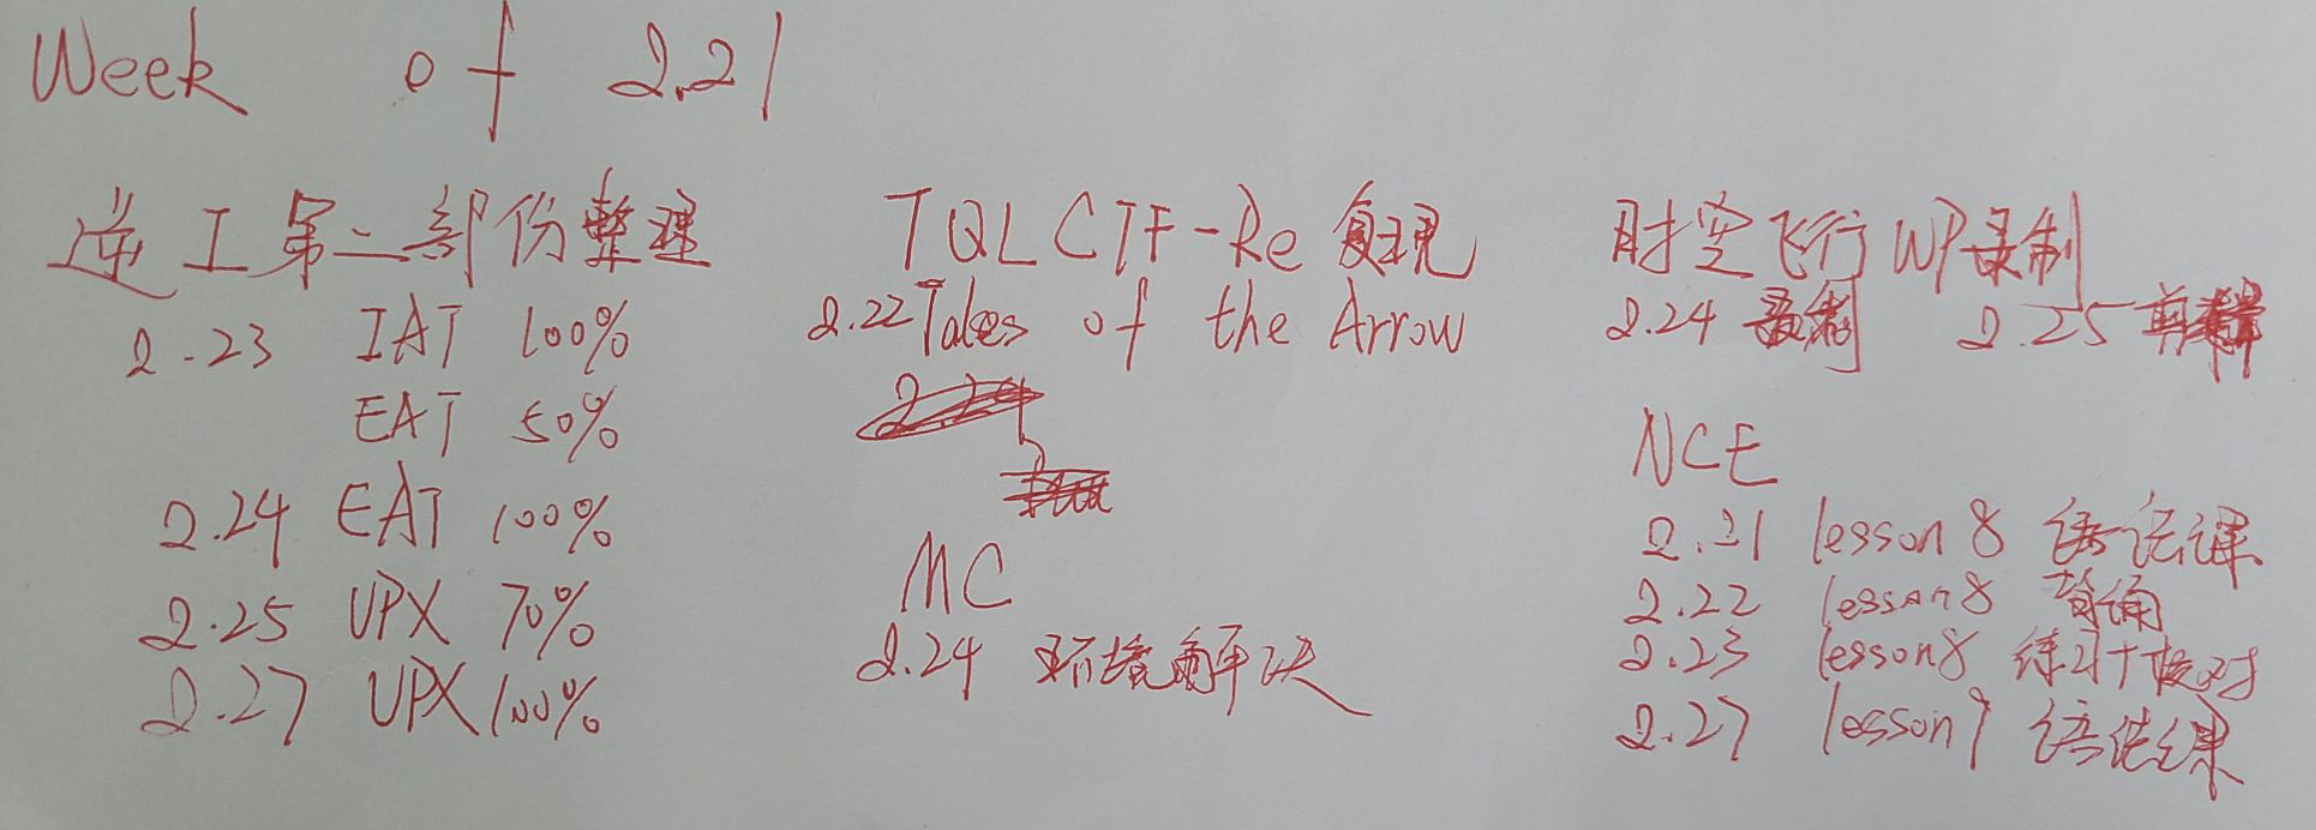 Week of 2.21
逆工第二部份整理
2.23 IAT 100%
EAT 50%
2.24 EAT 100%
2.25 UPX 70%
2.27 UPX 100%
TQLCTF-Re 复现
2.22 Tales of the Arrow
MC
2.24 环境解决
时空飞行 WP录制
2.24 录制 2.25 剪辑
NCE
2.21 lesson 8 语法课
2.22 lesson 8 背诵
2.23 lesson 8 练习+核对
2.27 lesson 9 语法课